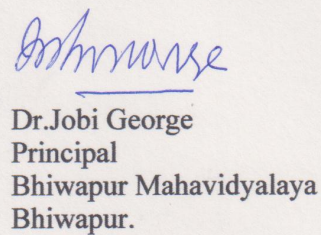 Dr.Jobi George
Principal
Bhiwapur Mahavidyalaya
Bhiwapur.